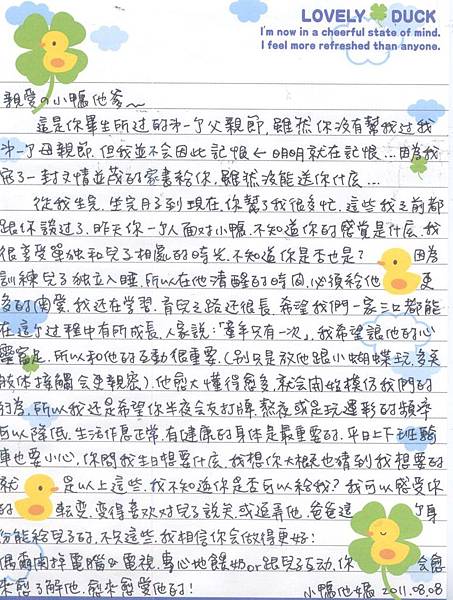 LOVELY DUCK
I'm now in a cheerful state of mind.
I feel more refreshed than anyone.
親愛の小鴨他爹~
這是你畢生所过的第一個父親節,雖然你沒有幫我过我
第一個母親節,但我並不会因此記恨←明明就在記恨…因為我
寫了一封文情並茂的家書給你,雖然沒能送你什広…
從我生完,坐完月子到現在,你幫了我很多忙,這些我之前都
跟你談过了,昨天你一個人面对小鴨,不知道你的感覚是什広,我
很享受單独和兒子相處的時光,不知道你是否也是? 因為
訓練兒子独立入睡,所以在他清醒的時間,必須給他 更
多的関愛,我还在学習,育兒之路还很長,希望我們一家三口都能
在這个过程中有所成長,人家說:「童年只有一次」,我希望讓他的心
靈富足,所以和他的互動很重要,(別只是放他跟小蝴蝶玩,多点
肢体接觸会更親密),他愈大懂得愈多,就会開始模仿我們的
行為,所以我还是希望你半夜会友打牌、熬夜或是玩遙形的頻率
可以降低,生活作息正常,有健康的身体是最重要的,平日上下班騎
車也要小心,你問我生日想要什広,我想你大概也猜到我想要的
就 是以上這些,我不知道你是否可以給我?我可以感受你
的 転変,變得喜欢对兒子說笑,或逗弄他,爸爸這 个身
份能給兒子的,不只這些,我相信你会做得更好!
偶爾関掉電腦や電視,專心地餵奶or跟兒子互動,你 会愈
來愈了解他,愈來愈愛他的!
小鴨他媽 2011.08.08